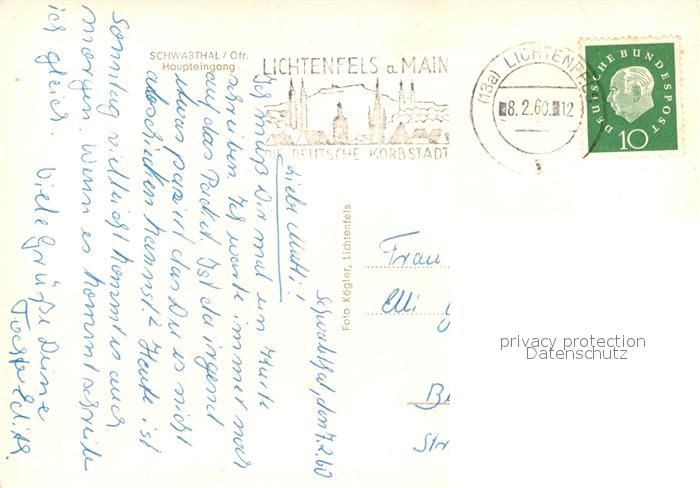 SCHWABTHAL / Ofr.
Haupteingang
LICHTENFELS a. MAIN
DIE DEUTSCHE KORBSTADT
(13a) LICHTENFELS
8.2.60.12
DEUTSCHE BUNDESPOST
10
Schwabthal, den 7.2.60
Liebe Mutti!
Ich muß Dir mal eine Karte
schreiben. Ich warte immer noch
auf das Packet. Ist da irgend
etwas passiert das Du es nicht
abschicken kannst? Heute ist
Sonntag vielleicht kommt es auch
morgen. Wenn es kommt schreibe
ich gleich. Viele Grüße Deine
Tochter Edith.
Foto Kögler, Lichtenfels
Frau
Elli
Str
privacy protection
Datenschutz